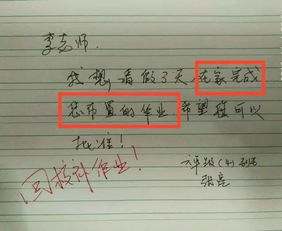 李老师
我想请假3天,在家完成
您布置的作业希望您可以
批准!
六年级(4)班
张亮
回校补作业!